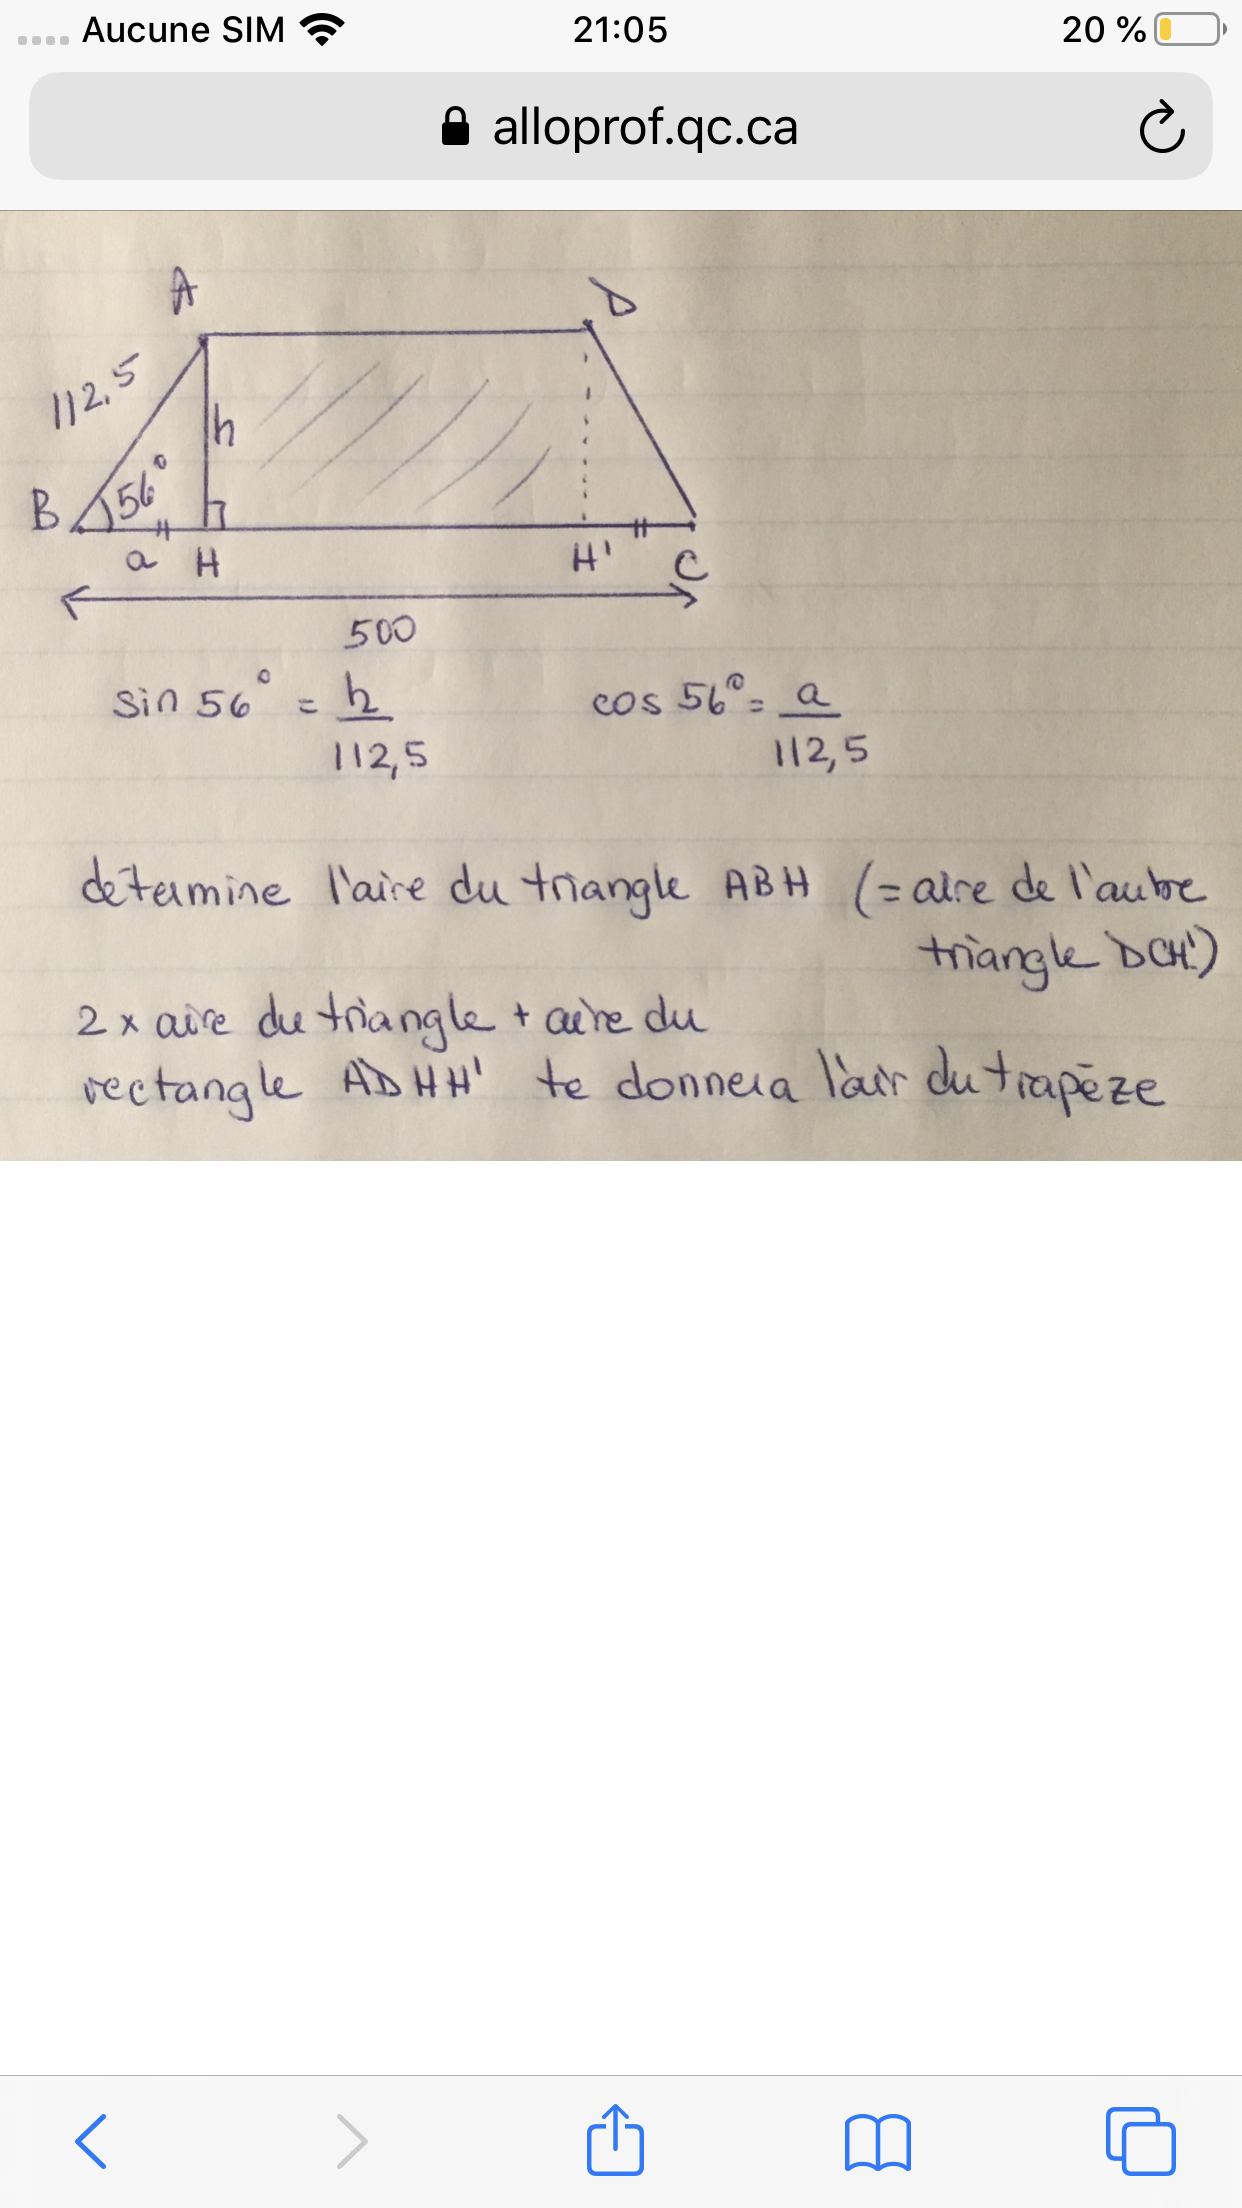 Aucune SIM 21:05 20 %
alloprof.qc.ca
A D
112,5
h
B 56°
a H H' C
500
sin 56° = h/112,5 cos 56° = a/112,5
détermine l'aire du triangle ABH (= aire de l'autre
triangle DCH')
2 x aire du triangle + aire du
rectangle ADHH' te donnera l'air du trapèze